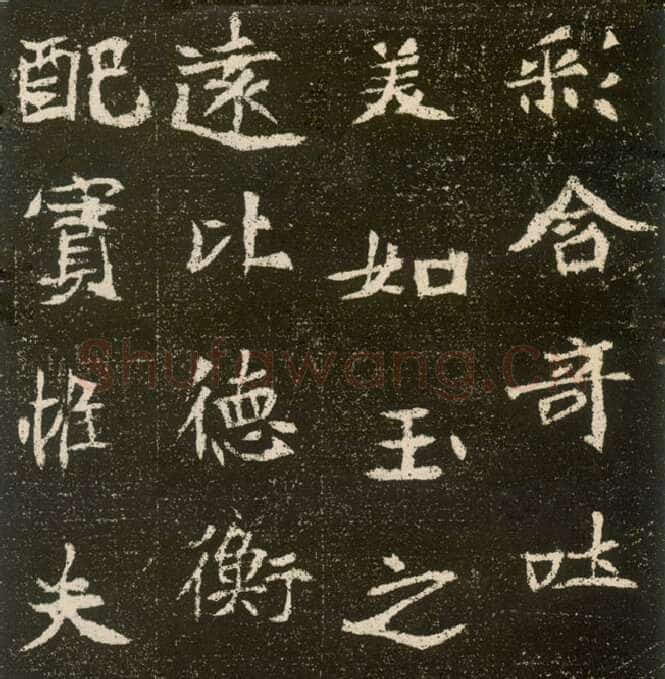 彩含奇吐
美如玉之
遠比德衡
配實惟夫
Shufawang.CN